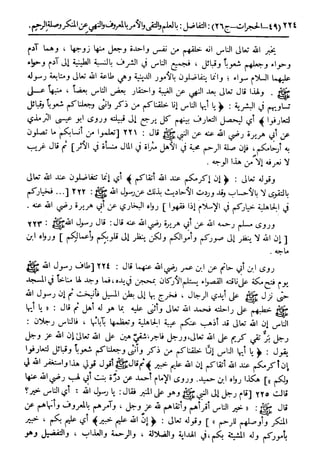 ٢٢٤ (٤٩ – الحجرات – ج٢٦) : التفاضل : بالعلم والتقى والأمر بالمعروف والنهي عن المنكر وصلة الرحيم.
يخبر الله تعالى الناس انه خلقهم من نفس واحدة وجعل منها زوجها ، وهما آدم
وحواء وجعلهم شعوباً وقبائل ، فجميع الناس في الشرف بالنسبة الطينية إلى آدم وحواء
عليهما السلام سواء ؛ وإنما يتفاضلون بالأمور الدينية وهي طاعة الله تعالى ومتابعة رسوله
. ولهذا قال تعالى بعد النهي عن الغيبة واحتقار بعض الناس بعضاً ، منبهاً على
تساويهم في البشرية : ﴿ يا أيها الناس إنا خلقناكم من ذكر وأنثى وجعلناكم شعوباً وقبائل
لتعارفوا ﴾ أي ليحصل التعارف بينهم كل يرجع إلى قبيلته وروى ابو عيسى الترمذي
عن أبي هريرة رضي الله عنه عن النبي ﷺ قال : ٢٢١ [تعلموا من أنسابكم ما تصلون
به أرحامكم، فإن صلة الرحم محبة في الأهل مثراة في المال منسأة في الأثر] ثم قال غريب
لا نعرفه إلا من هذا الوجه .
وقوله تعالى : ﴿ إن أكرمكم عند الله أتقاكم ﴾ أي إنما تتفاضلون عند الله تعالى
بالتقوى لا بالأحساب وقد وردت الأحاديث بذلك عن رسول الله ﷺ : ٢٢٢ [... فخياركم
في الجاهلية خياركم في الإسلام إذا فقهوا ] رواه البخاري عن أبي هريرة رضي الله عنه .
وروى مسلم رحمه الله عن أبي هريرة رضي الله عنه قال: قال رسول الله ﷺ : ٢٢٣
[ إن الله لا ينظر إلى صوركم وأموالكم ولكن ينظر إلى قلوبكم وأعمالكم ] ورواه ابن
ماجه .
روى ابن أبي حاتم عن ابن عمر رضي الله عنهما قال : ٢٢٤ [طاف رسول الله ﷺ
يوم فتح مكة على ناقته القصواء يستلم الأركان بمحجن في يده، فما وجد لها مناخاً في المسجد
حتى نزل ﷺ على أيدي الرجال ، فخرج بها إلى بطن المسيل فأنيخت ثم إن رسول الله
ﷺ خطبهم على راحلته فحمد الله تعالى وأثنى عليه بما هو له أهل ثم قال : « يا أيها
الناس إن الله تعالى قد أذهب عنكم عيبة الجاهلية وتعظمها بآبائها ، فالناس رجلان :
رجل بر تقي كريم على الله تعالى، ورجل فاجر، شقي هين على الله تعالى إن الله عز وجل
يقول : ﴿ يا أيها الناس إنا خلقناكم من ذكر وأنثى وجعلناكم شعوباً وقبائل لتعارفوا
إن أكرمكم عند الله أتقاكم إن الله عليم خبير ﴾ ثم قال ﷺ أقول قولي هذا وأستغفر الله لي
ولكم »] هكذا رواه ابن حميد. وروى الإمام أحمد عن درة بنت أبي لهب رضي الله عنها
قالت ٢٢٥ [قام رجل إلى النبي ﷺ وهو على المنبر فقال: يا رسول الله أي الناس خير؟
قال ﷺ : « خير الناس أقرأهم وأتقاهم لله عز وجل ، وآمرهم بالمعروف وأنهاهم عن
المنكر وأوصلهم للرحم »] وقوله تعالى : ﴿ إن الله عليم خبير ﴾ أي عليم بكم ، خبير
بأموركم وله المشيئة بكم، في الهداية والضلالة ، والرحمة والعذاب ، والتفضيل وهو